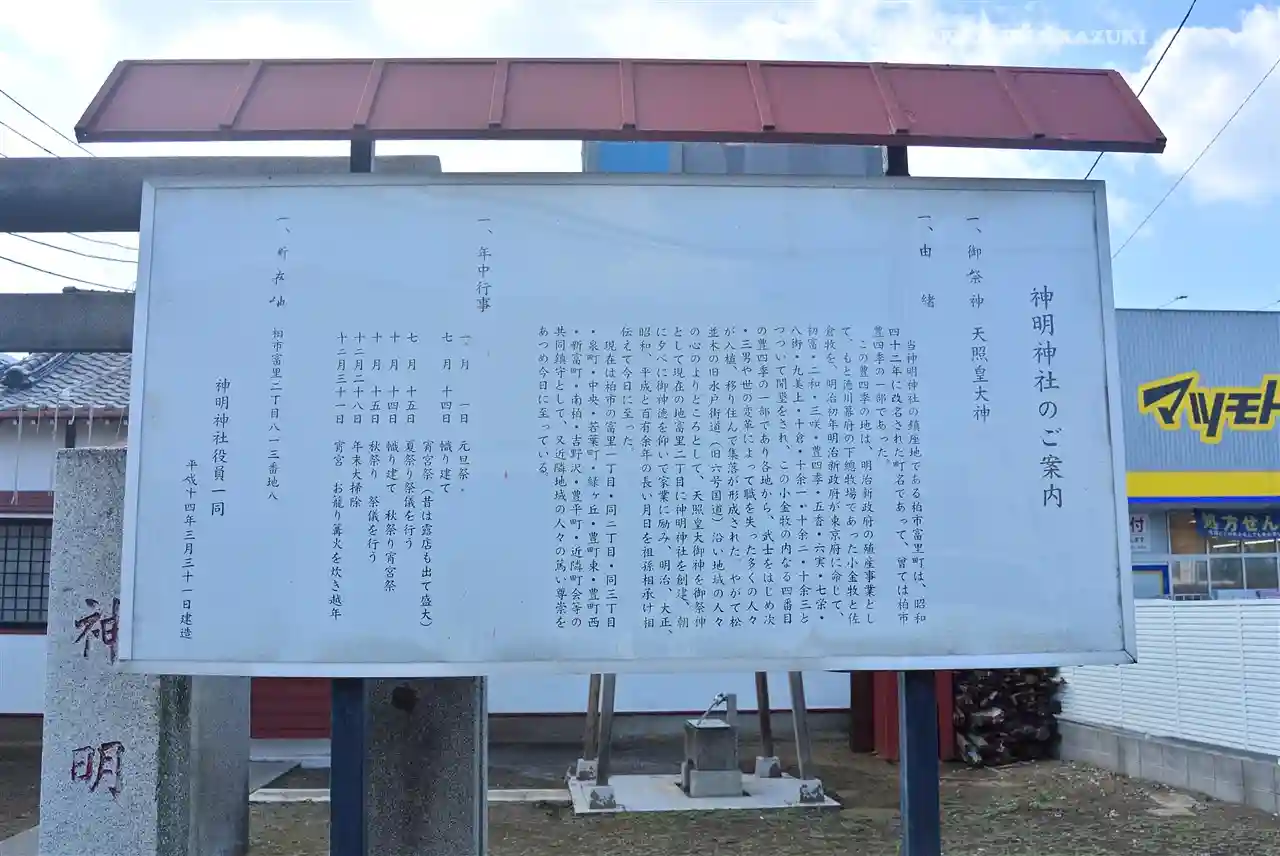 神明神社のご案内
一、御祭神　天照皇大神
一、由緒
当神明神社の鎮座地である柏市富里町は、昭和
四十二年に改名された町名であって、曾ては柏市
豊四季の一部であった。
この豊四季の地は、明治新政府の殖産事業とし
て、もと徳川幕府の下総牧場であった小金牧と佐
倉牧を、明治初年明治新政府が東京府に命じて、
初富・二和・三咲・豊四季・五香・六実・七栄・
八街・九美上・十倉・十余一・十余二・十余三と
つづいて開墾をされ、この小金牧の内なる四番目
の豊四季の一部であり各地から、武士をはじめ次
・三男や世の変革によって職を失った多くの人々
が入植、移り住んで集落が形成された。やがて松
並木の旧水戸街道（旧六号国道）沿い地域の人々
の心のよりどころとして、天照皇大御神を御祭神
として現在の地富里二丁目に神明神社を創建、朝
に夕べに御神徳を仰いで家業に励み、明治、大正、
昭和、平成と百有余年の長い月日を祖孫相承け相
伝えて今日に至った。
現在は柏市の富里一丁目・同二丁目・同三丁目
・泉町・中央・若葉町・緑ヶ丘・豊町東・豊町西
・新富町・南柏・吉野沢・豊平町・近隣町会等の
共同鎮守として、又近隣地域の人々の篤い尊崇を
あつめ今日に至っている。
一、年中行事
一月　一日　元旦祭・
七月　十四日　幟り建て
宵宮祭（昔は露店も出て盛大）
七月　十五日　夏祭り祭儀を行う
十月　十四日　幟り建て　秋祭り宵宮祭
十月　十五日　秋祭り　祭儀を行う
十二月二十八日　年末大掃除
十二月三十一日　宵宮　お籠り篝火を炊き越年
一、所在地　柏市富里二丁目八一三番地八
神明神社役員一同
平成十四年三月三十一日建造
神明
マツモト
処方せん